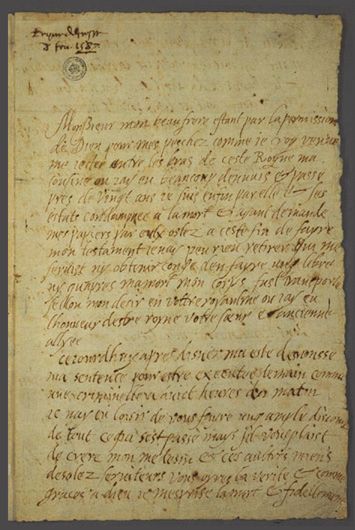 8 feu. 1587
Monssieur mon beau frere estant par la permission
de Dieu pour mes peschez comme ie croy venue
me iecter entre les bras de ceste Royne ma
cousine ou iay eu beaucoup dennuis & passe
pres de vingt ans ie suis enfin par elle & ses
estats condampnee a la mort & ayant demande
mes papiers par eulx ostez a ceste fin de fayre
mon testament ie nay peu rien retirer qui me
servist ny obtenir conge den fayre ung libre
ny quapres ma mort mon corps fust transporte
sellon mon desir en votre royaulme ou iay eu
lhonneur destre royne votre sœur & ancienne
allyee
Ceiourdhuy apres disner ma este denonsse
ma sentence pour estre executee demain comme
une criminelle a huict heures du matin
ie nay eu loisir de vous fayre ung ample discours
de tout ce qui sest passe mays sil vous plaist
de crere mon medessin & ces aultres miens
desolez serviteurs vous oyres la verite & comme
graces a dieu ie mesprise la mort & fidellemant